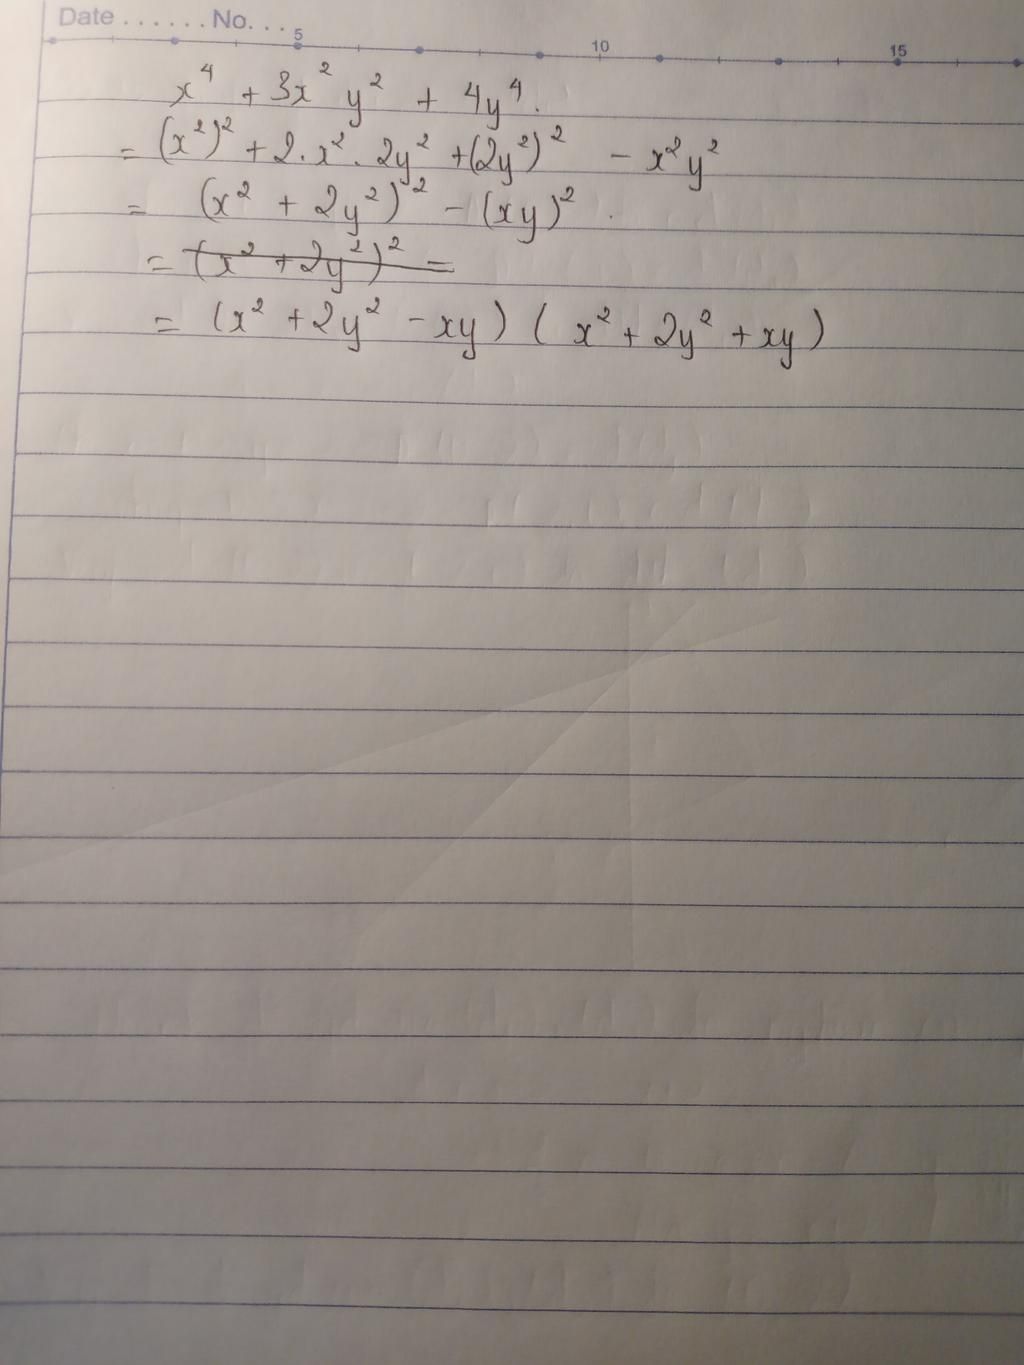 Date ...... No. ...
5 10 15
x⁴ + 3x² y² + 4y⁴.
= (x²)² + 2.x². 2y² +(2y²)² - x²y²
= (x² + 2y²)² - (xy)².
= (x² + 2y²)² =
= (x² + 2y² - xy) ( x² + 2y² + xy)